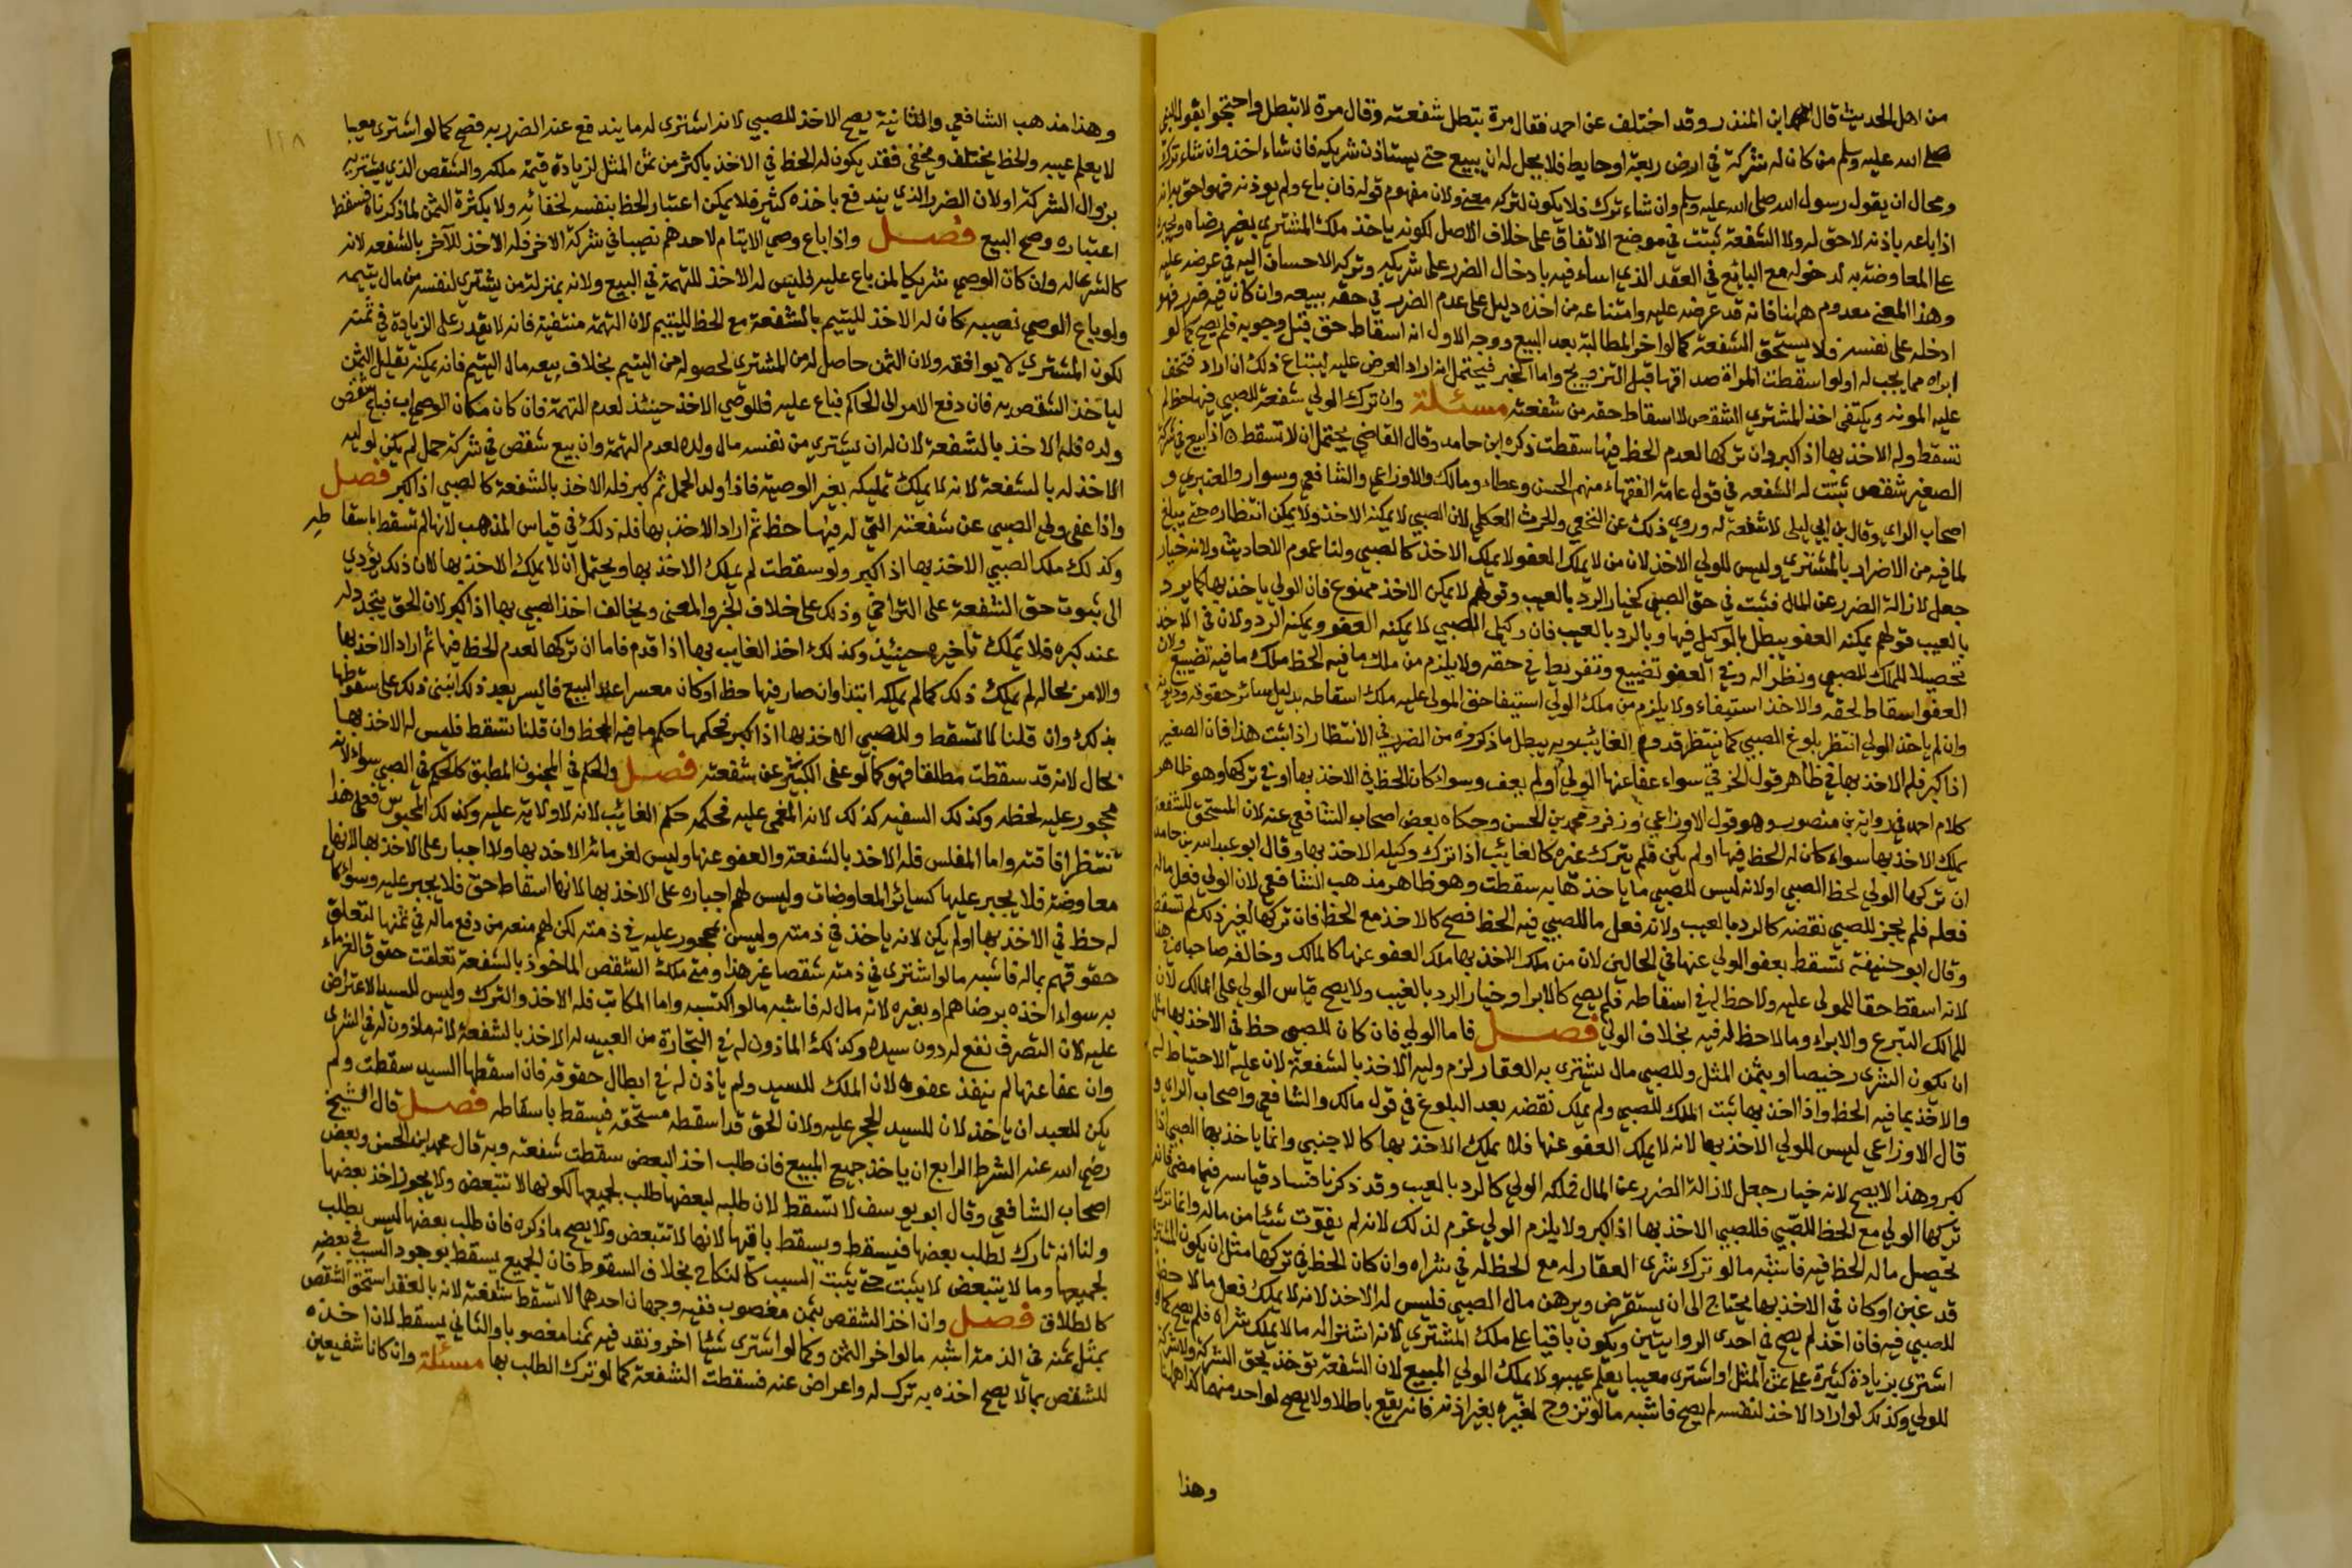 من اهل الحديث قال ابن المنذر وقد اختلف عن احمد فقال مرة تبطل شفعته وقال مرة لا تبطل واحتجوا بقول النبي
صلى الله عليه وسلم من كان له شركة في ارض ربعة او حايط فلا يحل له ان يبيع حتى يستاذن شريكه فان شاء اخذ وان شاء ترك
ومحال ان يقول رسول الله صلى الله عليه وسلم وان شاء ترك فلا يكون لتركه معنى ولان مفهوم قوله فان باع ولم يوذنه فهو احق به انه
اذا باعه باذنه لا حق له ولا الشفعة ثبتت في موضع الاتفاق على خلاف الاصل لكونه ياخذ ملك المشتري بغير رضاه ويجبره
على المعاوضة به لدخوله مع البائع في العقد الذي اساء فيه بادخال الضرر على شريكه وتركه الاحسان اليه في عرضه عليه
وهذا المعنى معدوم ههنا فانه قد عرضه عليه وامتناعه من اخذه دليل على عدم الضرر في حقه ببيعه وان كان فيه ضرر فهو
ادخله على نفسه فلا يستحق الشفعة كما لو اخر المطالبة بعد البيع ووجه الاول انه اسقاط حق قبل وجوبه فلم يصح كما لو
ابراه مما يجب له او لو اسقطت المراة صداقها قبل التزويج واما الخبر فيحتمل انه اراد العرض عليه ليبتاع ذلك ان اراد فتخف
عليه المونه ويكتفي اخذ المشتري الشقص لا اسقاط حقه من شفعته مسئلة وان ترك الولي شفعة للصبي فيها حظ لم
تسقط وله الاخذ بها اذا كبر وان تركها لعدم الحظ فيها سقطت ذكره ابن حامد وقال القاضي يحتمل ان لا تسقط اذا بيع في شركة
الصغير شقص ثبتت له الشفعه في قول عامة الفقهاء منهم الحسن وعطاء ومالك والاوزاعي والشافعي وسوار والعنبري و
اصحاب الراي وقال بن ابي ليلى لا شفعة له وروي ذلك عن النخعي والحرث العكلي لان الصبي لا يمكنه الاخذ ولا يمكن انتظاره حتى يبلغ
لما فيه من الاضرار بالمشتري وليس للولي الاخذ لان من لا يملك العفو لا يملك الاخذ كالصبي ولنا عموم الاحاديث ولانه خيار
جعل لازالة الضرر عن المال فثبت في حق الصبي كخيار الرد بالعيب وقولهم لا يمكن الاخذ ممنوع فان الولي ياخذ بها كما يرد
بالعيب قولهم يمكنه العفو يبطل بالوكيل فيها وبالرد بالعيب فان وكيل الصبي لا يمكنه العفو ويمكنه الرد ولان في الاخذ
تحصيلا للملك للصبي ونظرا له وفي العفو تضييع وتفريط في حقه ولا يلزم من ملك ما فيه الحظ ملك ما فيه تضييع ولان
العفو اسقاط لحقه والاخذ استيفاء ولا يلزم من ملك الولي استيفا حق المولى عليه ملك اسقاطه بدليل سائر حقوقه وديونه
وان لم ياخذ الولي انتظر بلوغ الصبي كما ينتظر قدوم الغائب وبه يبطل ما ذكروه من الضرر في الانتظار اذا ثبت هذا فان الصغير
اذا كبر فله الاخذ بها في ظاهر قول الخرقي سواء عفا عنها الولي او لم يعف وسواء كان الحظ في الاخذ بها او في تركها وهو ظاهر
كلام احمد في رواية بن منصور وهو قول الاوزاعي وزفر ومحمد بن الحسن وحكاه بعض اصحاب الشافعي عنه لان المستحق للشفعة
يملك الاخذ بها سواء كان له الحظ فيها او لم يكن فلم يترك غيره كالغائب اذا ترك وكيله الاخذ بها وقال ابو عبد الله بن حامد
ان تركها الولي لحظ الصبي او لانه ليس للصبي ما ياخذها به سقطت وهو ظاهر مذهب الشافعي لان الولي فعل ماله
فعله فلم يجز للصبي نقضه كالرد بالعيب ولانه فعل ما للصبي فيه الحظ فصح كالاخذ مع الحظ فان تركها لغير ذلك لم تسقط
وقال ابو حنيفة تسقط بعفو الولي عنها في الحالين لان من ملك الاخذ بها ملك العفو عنها كالمالك وخالفه صاحباه في هذا
لانه اسقط حقا للمولى عليه ولا حظ له في اسقاطه فلم يصح كالابرا وخيار الرد بالعيب ولا يصح قياس الولي على المالك لان
للمالك التبرع والابراء وما لا حظ له فيه بخلاف الولي فصل فاما الولي فان كان للصبي حظ في الاخذ بها مثل
ان يكون الشرى رخيصا او بثمن المثل وللصبي مال يشترى به العقار لزم وليه الاخذ بالشفعة لان عليه الاحتياط له
والاخذ بما فيه الحظ واذا اخذ بها ثبت الملك للصبي ولم يملك نقضه بعد البلوغ في قول مالك والشافعي واصحاب الراي و
قال الاوزاعي ليس للولي الاخذ بها لانه لا يملك العفو عنها فلا يملك الاخذ بها كالاجنبي وانما ياخذ بها الصبي اذا
كبر وهذا لا يصح لانه خيار جعل لازالة الضرر عن المال فملكه الولي كالرد بالعيب وقد ذكرنا فساد قياسه فيما مضى فان
تركها الولي مع الحظ للصبي فللصبي الاخذ بها اذا كبر ولا يلزم الولي غرم لذلك لانه لم يفوت شيئا من ماله وانما ترك
تحصيل ماله الحظ فيه فاشبه ما لو ترك شرى العقار له مع الحظ له في شراه وان كان الحظ في تركها مثل ان يكون المشتري
قد غبن او كان في الاخذ بها يحتاج الى ان يستقرض ويرهن مال الصبي فليس له الاخذ لانه لا يملك فعل ما لا حظ
للصبي فيه فان اخذ لم يصح في احدى الروايتين ويكون باقيا على ملك المشتري لانه اشترى له ما لا يملك شراه فلم يصح كما لو
اشترى بزيادة كثيرة على ثمن المثل او اشترى معيبا يعلم عيبه ولا يملك الولي المبيع لان الشفعة توخذ بحق الشركة ولا شركة
للولي وكذلك لو اراد الاخذ لنفسه لم يصح فاشبه ما لو تزوج لغيره بغير اذنه فانه يقع باطلا ولا يصح لواحد منهما كذا ههنا
وهذا
١١٨
وهذا مذهب الشافعي والثانية يصح الاخذ للصبي لانه اشترى له ما يندفع عنه الضرر به فصح كما لو اشترى معيبا
لا يعلم عيبه والحظ يختلف ويخفى فقد يكون له الحظ في الاخذ باكثر من ثمن المثل لزيادة قيمة ملكه والشقص الذي يشتريه
بزوال الشركة او لان الضرر الذي يندفع باخذه كثير فلا يمكن اعتبار الحظ بنفسه لخفائه ولا بكثرة الثمن لما ذكرناه فسقط
اعتباره وصح البيع فصل واذا باع وصي الايتام لاحدهم نصيبا في شركة الاخر فله الاخذ للآخر بالشفعه لانه
كالشرى له وان كان الوصي شريكا لمن باع عليه فليس له الاخذ للتهمة في البيع ولانه بمنزلة من يشتري لنفسه من مال يتيمه
ولو باع الوصي نصيبه كان له الاخذ لليتيم بالشفعة مع الحظ لليتيم لان التهمة منتفية فانه لا يقدر على الزيادة في ثمنه
لكون المشتري لا يوافقه ولان الثمن حاصل له من المشتري لحصوله من اليتيم بخلاف بيعه مال اليتيم فانه يمكنه تقليل الثمن
لياخذ الشقص به فان دفع الامر الى الحاكم فباع عليه فللوصي الاخذ حينئذ لعدم التهمة فان كان مكان الوصي اب فباع شقص
ولده فله الاخذ بالشفعة لان له ان يشتري من نفسه مال ولده لعدم التهمة وان بيع شقص في شركة حمل لم يكن لوليه
الاخذ له بالشفعة لانه لا يملك تمليكه بغير الوصية فاذا ولد الحمل ثم كبر فله الاخذ بالشفعة كالصبي اذا كبر فصل
واذا عفى ولي الصبي عن شفعته التي له فيها حظ ثم اراد الاخذ بها فله ذلك في قياس المذهب لانها لم تسقط باسقاطه
وكذلك ملك الصبي الاخذ بها اذا كبر ولو سقطت لم يملك الاخذ بها ويحتمل ان لا يملك الاخذ بها لان ذلك يؤدي
الى ثبوت حق الشفعة على التراخي وذلك على خلاف الخبر والمعنى ويخالف اخذ الصبي بها اذا كبر لان الحق يتجدد له
عند كبره فلا يملك تاخيره حينئذ وكذلك اخذ الغايب بها اذا قدم فاما ان تركها لعدم الحظ فيها ثم اراد الاخذ بها
والامر بحاله لم يملك ذلك كما لم يملكه ابتداء وان صار فيها حظ او كان معسرا عند البيع فايسر بعد ذلك انبنى ذلك على سقوطها
بذلك وان قلنا لا تسقط وللصبي الاخذ بها اذا كبر فحكمها حكم ما فيه الحظ وان قلنا تسقط فليس له الاخذ بها
بحال لانه قد سقطت مطلقا فهو كما لو عفى الكبير عن شفعته فصل والحكم في المجنون المطبق كالحكم في الصبي سواء لانه
محجور عليه لحظه وكذلك السفيه كذلك لانه المغمى عليه فحكمه حكم الغائب لانه لا ولاية عليه وكذلك المحبوس فعلى هذا
تنتظر افاقته واما المفلس فله الاخذ بالشفعة والعفو عنها وليس لغرمائه الاخذ بها ولا اجباره على الاخذ بها لانها
معاوضة فلا يجبر عليها كسائر المعاوضات وليس لهم اجباره على الاخذ بها لانها اسقاط حق فلا يجبر عليه وسواء كان
له حظ في الاخذ بها او لم يكن لانه ياخذ في ذمته وليس بمحجور عليه في ذمته لكن لهم منعه من دفع ماله في ثمنها لتعلق
حقوقهم بماله فاشبه ما لو اشترى في ذمته شقصا غير هذا ومتى ملك الشقص الماخوذ بالشفعة تعلقت حقوق الغرماء
به سواء اخذه برضاهم او بغيره لانه مال له فاشبه ما لو اكتسبه واما المكاتب فله الاخذ والترك وليس للسيد الاعتراض
عليه لان التصرف نفع له دون سيده وكذلك الماذون له في التجارة من العبيد له الاخذ بالشفعة لانه ماذون له في الشرى
وان عفا عنها لم ينفذ عفوه لان الملك للسيد ولم ياذن له في ابطال حقوقه فان اسقطها السيد سقطت ولم
يكن للعبد ان ياخذ لان للسيد الحجر عليه ولان الحق قد اسقطه مستحقه فيسقط باسقاطه فصل قال الشيخ
رضي الله عنه الشرط الرابع ان ياخذ جميع المبيع فان طلب اخذ البعض سقطت شفعته وبه قال محمد بن الحسن وبعض
اصحاب الشافعي وقال ابو يوسف لا تسقط لان طلبه لبعضها طلب لجميعها لكونها لا تتبعض ولا يجوز اخذ بعضها
ولنا انه تارك لطلب بعضها فيسقط ويسقط باقيها لانها لا تتبعض ولا يصح ما ذكره فان طلب بعضها ليس بطلب
لجميعها وما لا يتبعض لا يثبت حتى يثبت السبب كالنكاح بخلاف السقوط فان الجميع يسقط بوجود السبب في بعضه
كالطلاق فصل وان اخذ الشقص بثمن مغصوب ففيه وجهان احدهما لا تسقط شفعته لانه بالعقد استحق الشقص
بمثل ثمنه في الذمة اشبه ما لو اخر الثمن وكما لو اشترى شيئا اخر ونقد فيه ثمنا مغصوبا والثاني يسقط لان اخذه
للشقص بما لا يصح اخذه به ترك له واعراض عنه فسقطت الشفعة كما لو ترك الطلب بها مسئلة وان كانا شفيعين